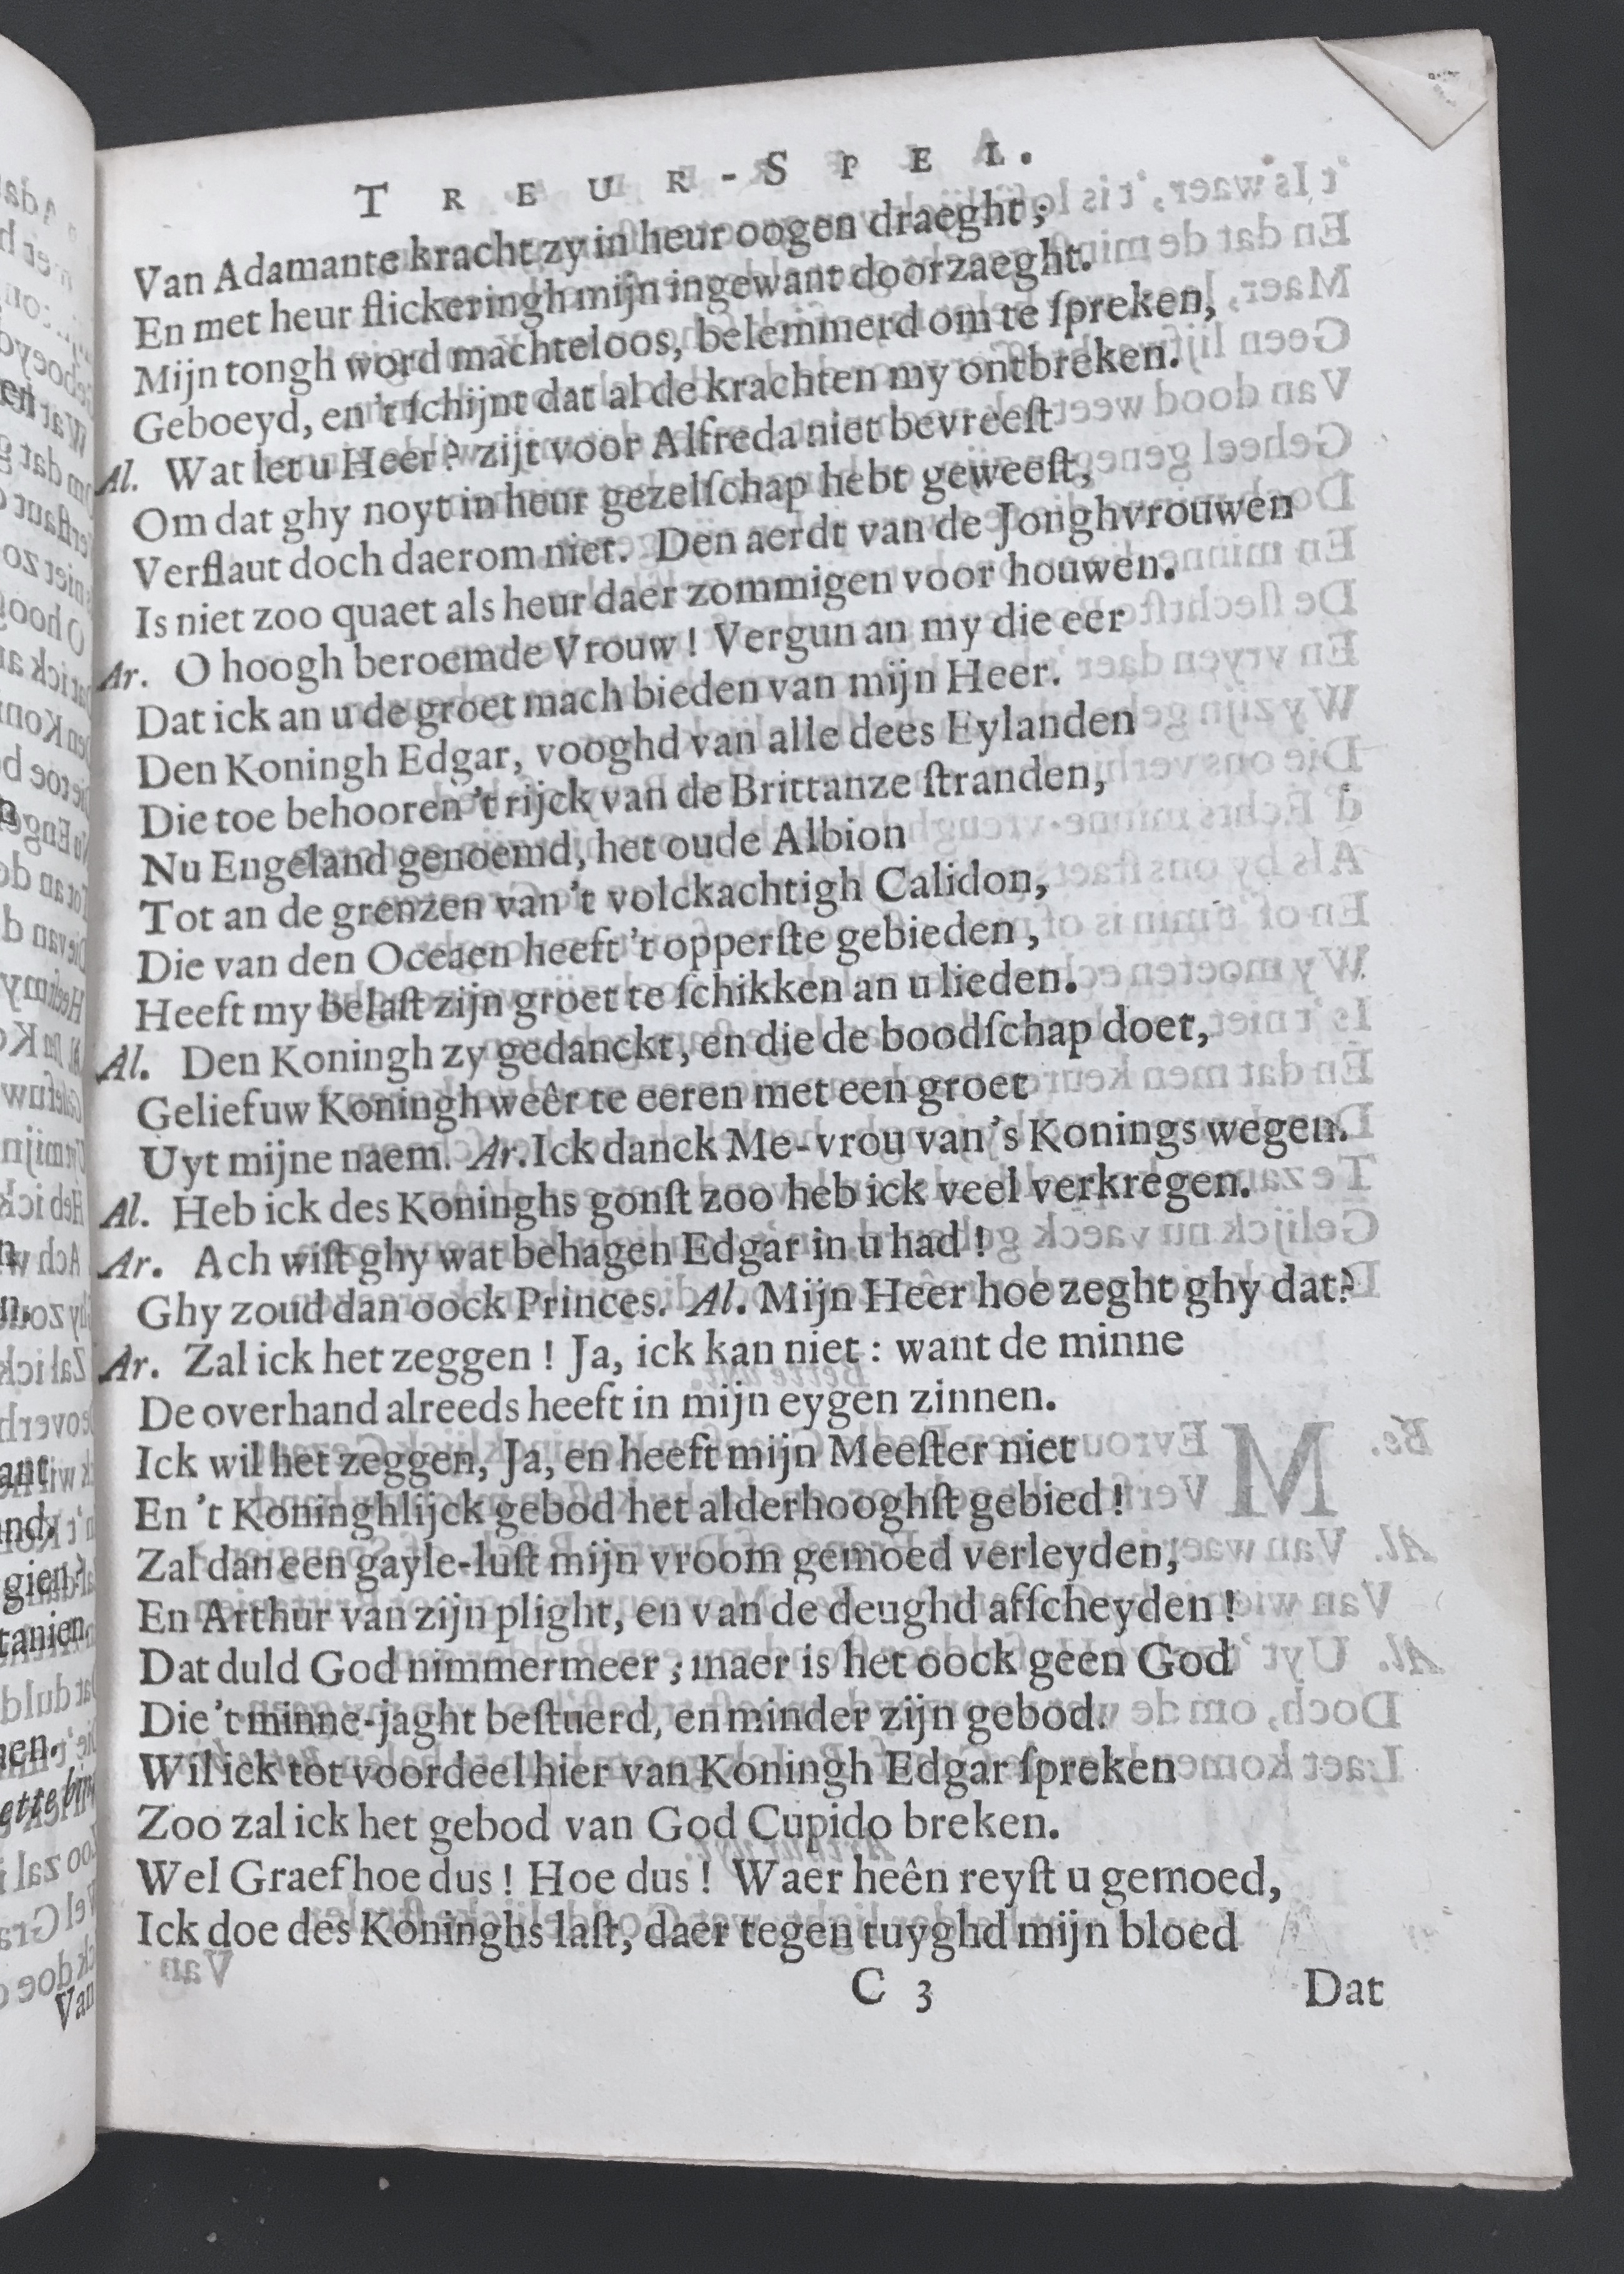 TREUR-SPEL.
Van Adamante kracht zy in heur oogen draeght;
En met heur flickeringh mijn ingewant doorzaeght.
Mijn tongh word machteloos, belemmerd om te ſpreken,
Geboeyd, en 't ſchijnt dat al de krachten my ontbreken.
Al. Wat let u Heer? zijt voor Alfreda niet bevreeſt
Om dat ghy noyt in heur gezelſchap hebt geweeſt,
Verflaut doch daerom niet. Den aerdt van de Jonghvrouwen
Is niet zoo quaet als heur daer zommigen voor houwen.
Ar. O hoogh beroemde Vrouw! Vergun an my die eer
Dat ick an u de groet mach bieden van mijn Heer.
Den Koningh Edgar, vooghd van alle dees Eylanden
Die toe behooren 't rijck van de Brittanze ſtranden,
Nu Engeland genoemd, het oude Albion
Tot an de grenzen van 't volckachtigh Calidon,
Die van den Oceaen heeft 't opperſte gebieden,
Heeft my belaſt zijn groet te ſchikken an u lieden.
Al. Den Koningh zy gedanckt, en die de boodſchap doet,
Gelief uw Koningh weêr te eeren met een groet
Uyt mijne naem. Ar. Ick danck Me-vrou van 's Konings wegen.
Al. Heb ick des Koninghs gonſt zoo heb ick veel verkregen.
Ar. Ach wiſt ghy wat behagen Edgar in u had!
Ghy zoud dan oock Princes. Al. Mijn Heer hoe zeght ghy dat?
Ar. Zal ick het zeggen! Ja, ick kan niet: want de minne
De overhand alreeds heeft in mijn eygen zinnen.
Ick wil het zeggen, Ja, en heeft mijn Meeſter niet
En 't Koninghlijck gebod het alderhooghſt gebied!
Zal dan een gayle-luſt mijn vroom gemoed verleyden,
En Arthur van zijn plight, en van de deughd afſcheyden!
Dat duld God nimmermeer; maer is het oock geen God
Die 't minne-jaght beſtuerd, en minder zijn gebod.
Wil ick tot voordeel hier van Koningh Edgar ſpreken
Zoo zal ick het gebod van God Cupido breken.
Wel Graef hoe dus! Hoe dus! Waer heên reyſt u gemoed,
Ick doe des Koninghs laſt, daer tegen tuyghd mijn bloed
C 3
Dat